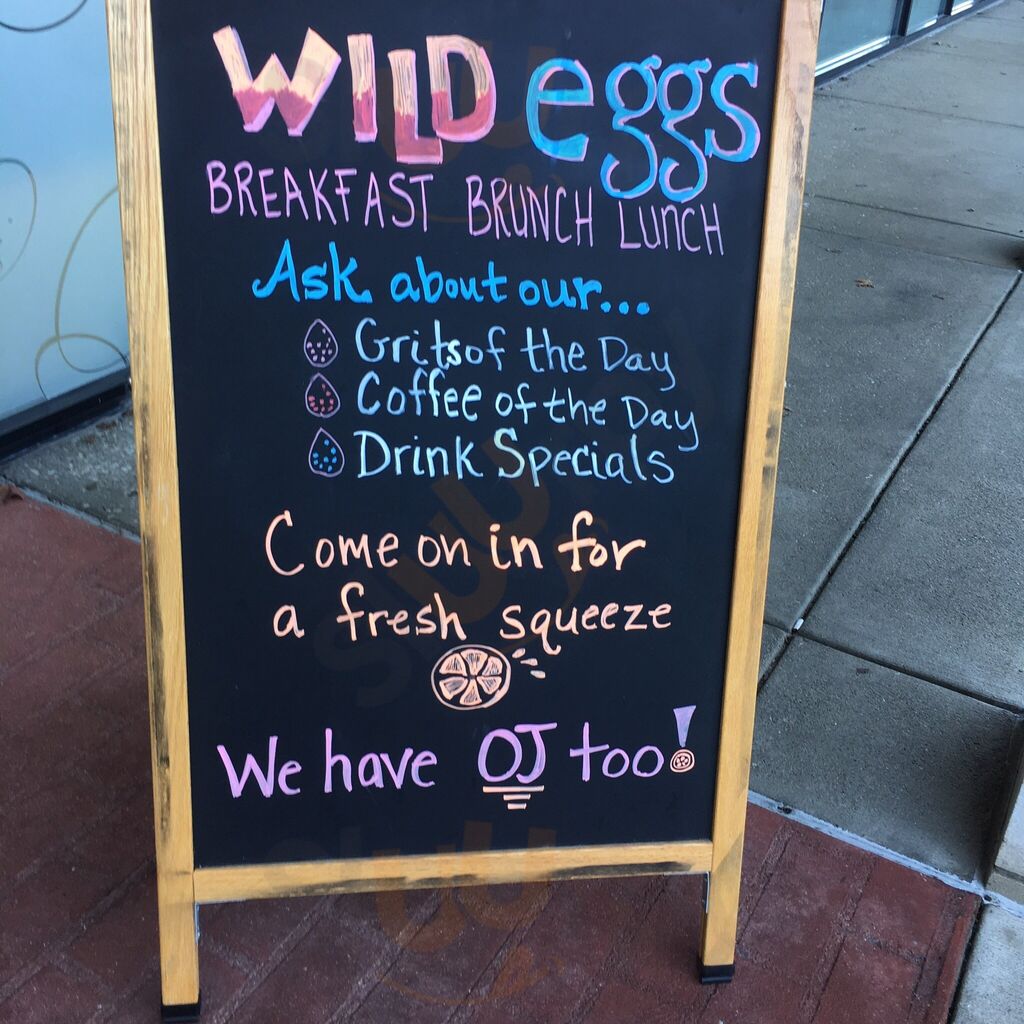 WILD eggs
BREAKFAST BRUNCH LUNCH
Ask about our...
Grits of the Day
Coffee of the Day
Drink Specials
Come on in for
a fresh squeeze
We have OJ too!